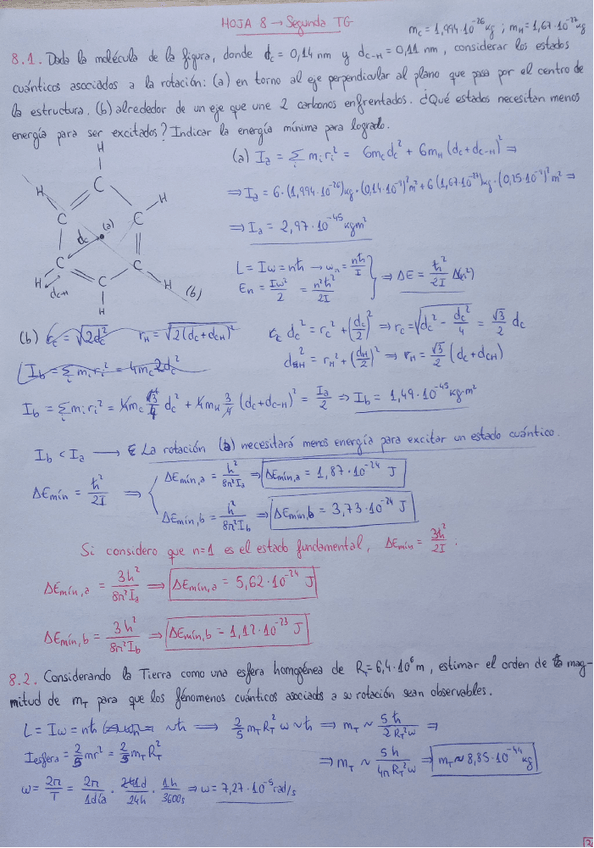 HOJA 8 → Segunda TG
m_C = 1,994·10^-26 kg ; m_H = 1,67·10^-27 kg
8.1. Dada la molécula de la figura, donde d_C = 0,14 nm y d_C-H = 0,11 nm, considerar los estados
cuánticos asociados a la rotación: (a) en torno al eje perpendicular al plano que pasa por el centro de
la estructura. (b) alrededor de un eje que une 2 carbonos enfrentados. ¿Qué estados necesitan menos
energía para ser excitados? Indicar la energía mínima para lograrlo.
(a) I_a = Σ_i m_i r_i^2 = 6m_C d_C^2 + 6m_H (d_C + d_C-H)^2 ⇒
⇒ I_a = 6·(1,994·10^-26) kg·(0,14·10^-9)^2 m^2 + 6(1,67·10^-27) kg·(0,25·10^-9)^2 m^2 ⇒
⇒ I_a = 2,97·10^-45 kgm^2
H H C C C C C C H H H H
d_C (a) d_C-H (b)
L = Iω = nħ → ω_n = nħ/I
E_n = Iω^2/2 = n^2ħ^2/2I ⇒ ΔE = ħ^2/2I Δ(n^2)
(b) r_C = √2d_C^2 r_H = √2(d_C + d_CH)^2
d_C^2 = r_C^2 + (d_C/2)^2 ⇒ r_C = √d_C^2 - d_C^2/4 = √3/2 d_C
I_b = Σ_i m_i r_i^2 = 4m_C 2d_C^2
d_H^2 = r_H^2 + (d_H/2)^2 ⇒ r_H = √3/2 (d_C + d_CH)
I_b = Σ_i m_i r_i^2 = 4m_C 3/4 d_C^2 + 4m_H 3/4 (d_C + d_C-H)^2 = I_a/2 ⇒ I_b = 1,49·10^-45 kg·m^2
I_b < I_a → La rotación (a) necesitará menos energía para excitar un estado cuántico.
ΔE_mín = ħ^2/2I ⇒
ΔE_mín,a = h^2/8π^2I_a ⇒ ΔE_mín,a = 1,87·10^-24 J
ΔE_mín,b = h^2/8π^2I_b ⇒ ΔE_mín,b = 3,73·10^-24 J
Si considero que n=1 es el estado fundamental, ΔE_mín = 3ħ^2/2I.
ΔE_mín,a = 3h^2/8π^2I_a ⇒ ΔE_mín,a = 5,62·10^-24 J
ΔE_mín,b = 3h^2/8π^2I_b ⇒ ΔE_mín,b = 1,12·10^-23 J
8.2. Considerando la Tierra como una esfera homogénea de R_T = 6,4·10^6 m, estimar el orden de mag-
nitud de m_T para que los fénomenos cuánticos asociados a su rotación sean observables.
L = Iω = nħ ~ ħ ⇒ 2/5 m_T R_T^2 ω ~ ħ ⇒ m_T ~ 5ħ/2R_T^2ω ⇒
I_esfera = 2/5 mr^2 = 2/5 m_T R_T^2
⇒ m_T ~ 5h/4πR_T^2ω ⇒ m_T ~ 8,85·10^-44 kg
ω = 2π/T = 2π/1día · 1d/24h · 1h/3600s ⇒ ω = 7,27·10^-5 rad/s